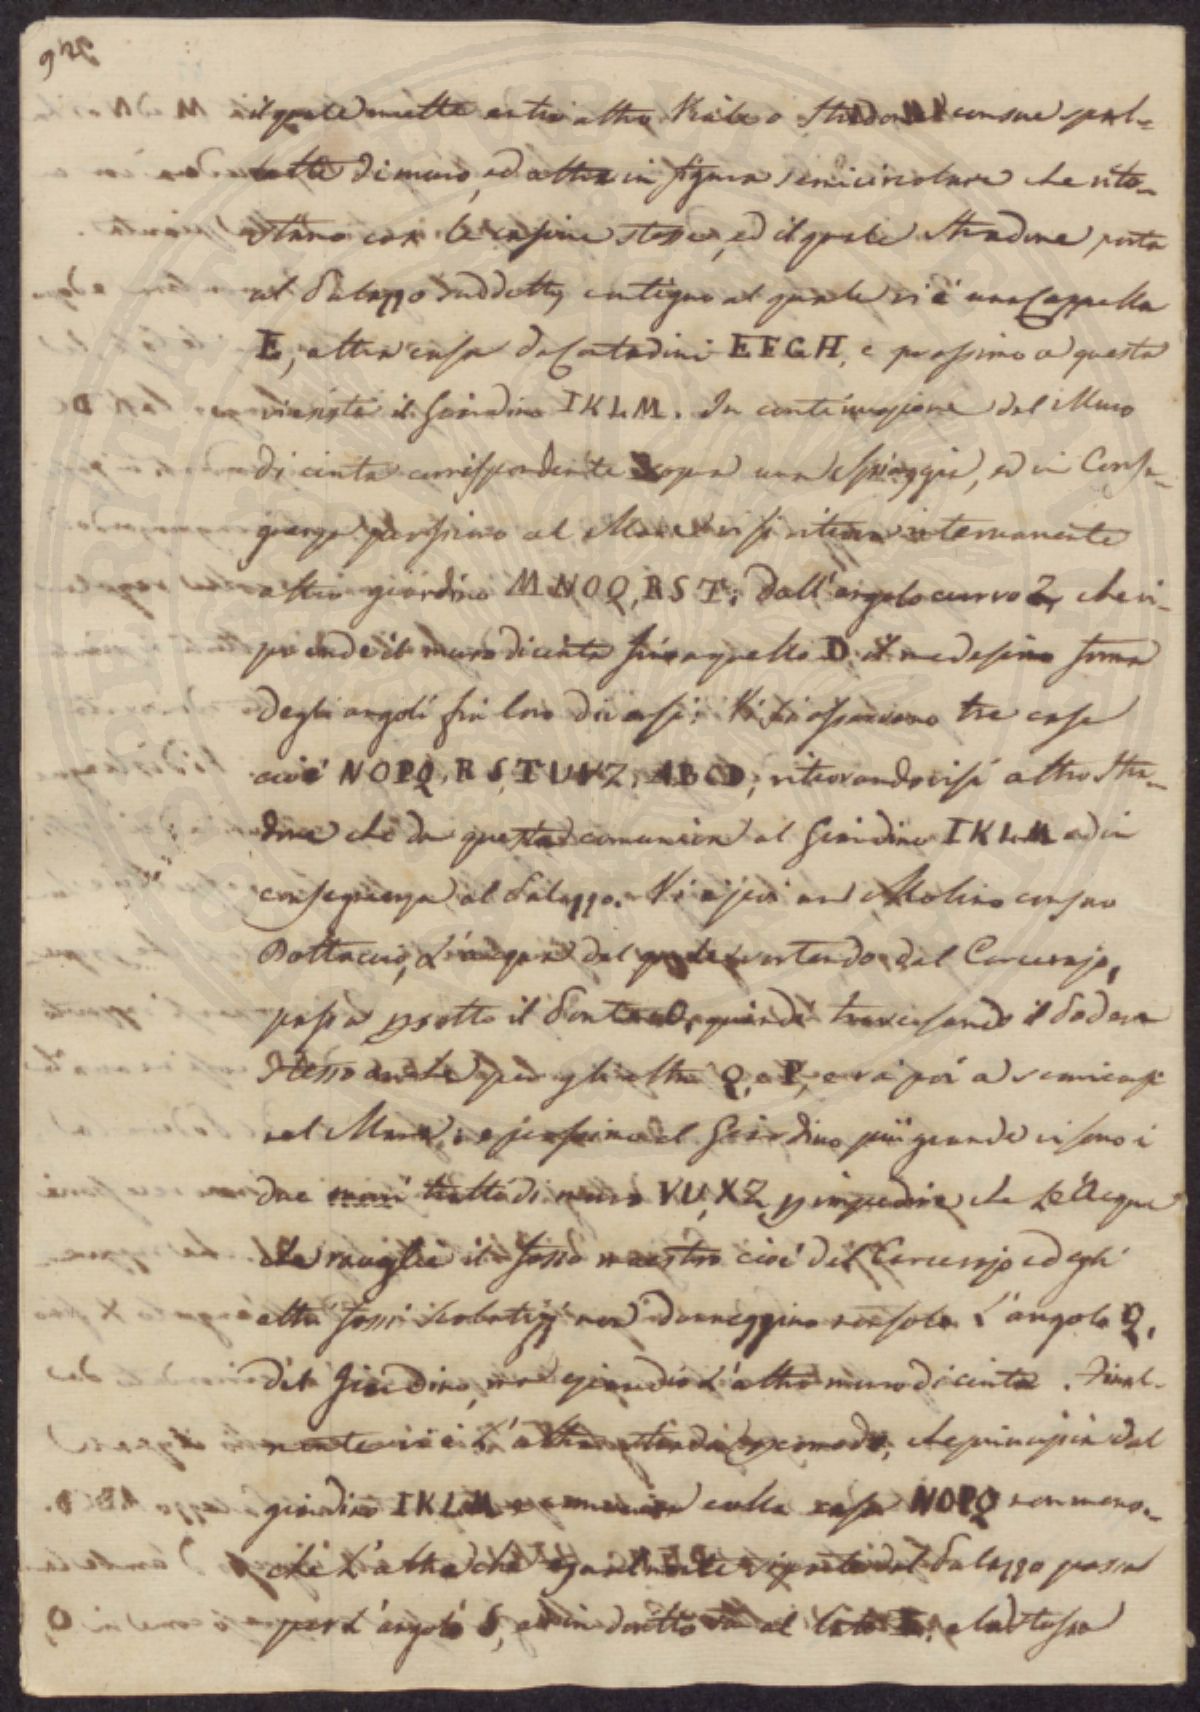 il quale mette entro altro Viale o Stradone con sue spal-
lette di muro, ed altra in figura semicircolare che
con le stesse, ed il quale Stradone porta
al Palazzo suddetto, contiguo al quale vi è una Cappella
E, altra casa da Contadini EFGH, e prossimo a questa
il Giardino IKLM. In continuazione del Muro
di cinta corrispondente sopra una spiaggia, ed in Conse-
guenza prossimo al Mare vi si ritrova internamente
altro giardino MNOQ,RST; dall'angolo curvo Z, che ri-
prende il muro di cinta sino a quello D il medesimo forma
degli angoli fra loro diversi. Vi si osservano tre case
cioè NOPQ, RSTUVZ, ABCD; ritrovandovisi altro Stra-
done che da questa comunica al Giardino IKLM ed in
conseguenza al Palazzo. Vi è poi un Molino con suo
Bottaccio, l'acqua del quale sortendo dal
passa sotto il quindi traversando il Podere
stesso anche per gli altri Q, e P, e va poi a scaricarsi
nel Mare, e prossimo al Giardino più grande vi sono i
due tratti di muro VU, XZ, impedire che le Acque
che il fosso maestro cioè del ed egli
altri fossi non danneggino non solo l'angolo Q,
del Giardino, ma eziandio l'altro muro di cinta. Final-
mente vi è l'altra strada comodo, che principia dal
giardino IKLM e comunica colla casa NOPQ non meno
che l'altra che egualmente dal Palazzo passa
per l'angolo S, ed in diritto al lato e la stessa